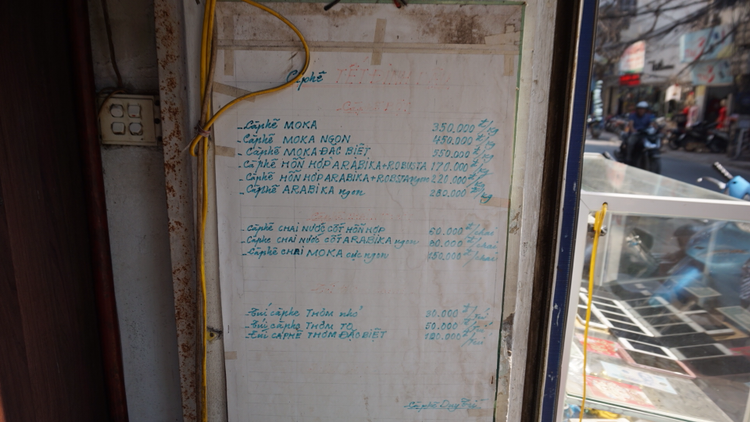 Cà phê
-Cà phê MOKA 350.000 đ/kg
-Cà phê MOKA NGON 450.000 đ/kg
-Cà phê MOKA ĐẶC BIỆT 550.000 đ/kg
-Cà phê HỖN HỢP ARABIKA+ROBUSTA 170.000 đ/kg
-Cà phê HỖN HỢP ARABIKA+ROBUSTA ngon 220.000 đ/kg
-Cà phê ARABIKA ngon 280.000 đ/kg
-Cà phê CHAI NƯỚC CỐT HỖN HỢP 60.000 đ/chai
-Cà phê CHAI NƯỚC CỐT ARABIKA ngon 80.000 đ/chai
-Cà phê CHAI MOKA cực ngon 150.000 đ/chai
-Túi cà phê THƠM nhỏ 30.000 đ/túi
-Túi cà phê THƠM TO 50.000 đ/túi
-Túi CÀ PHÊ THƠM ĐẶC BIỆT 100.000 đ/túi
-Cà phê Duy Trí